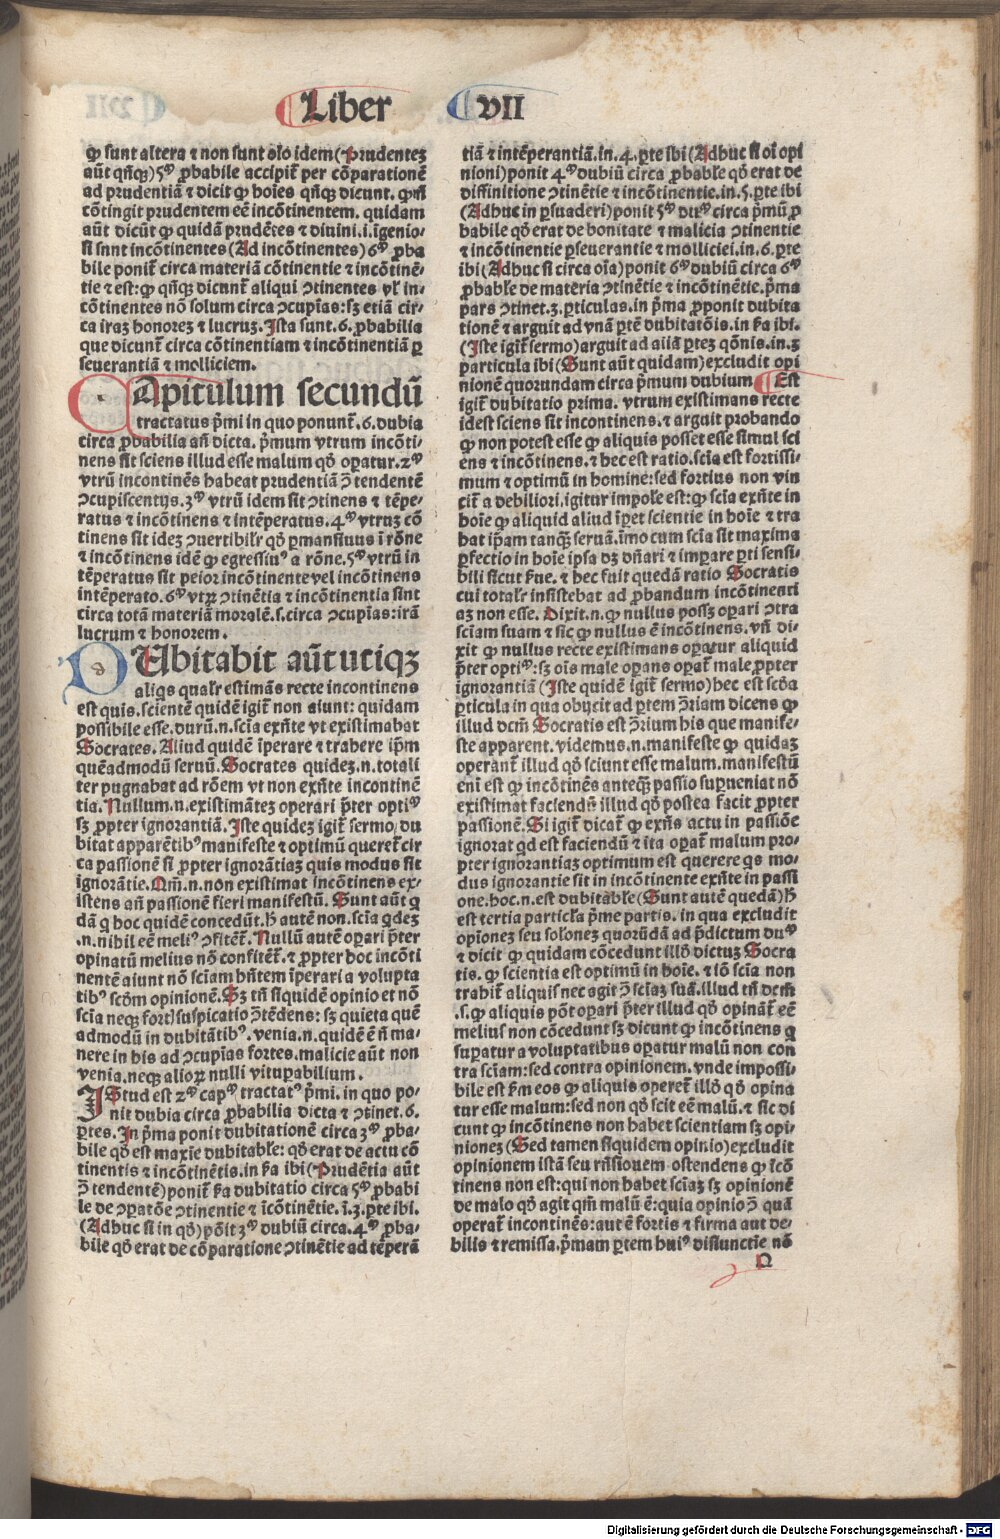 Liber VII
ꝙ sunt altera ⁊ non sunt oīo idem (Prudenteꝫ
aūt qn̄qꝫ) 5ᵐ ꝓbabile accipit̄ per cōparationē
ad prudentiā ⁊ dicit ꝙ hoīes qn̄qꝫ dicunt. ꝙ nō
cōtingit prudentem eē incōtinentem. quidam
aūt dicūt ꝙ quidā prudētes ⁊ diuini .i. īgenio-
si sunt incōtinentes (Ad incōtinentes) 6ᵐ ꝓba
bile ponit̄ circa materiā cōtinentie ⁊ incōtinē-
tie ⁊ est: ꝙ qn̄qꝫ dicunt aliqui ꝯtinentes vl̄ in-
cōtinentes nō solum circa ꝯcupīas: sꝫ etiā cir-
ca iraꝫ honoreꝫ ⁊ lucruꝫ. Ista sunt .6. ꝓbabilia
que dicunt̄ circa cōtinentiam ⁊ incōtinentiā ꝑ
seuerantiā ⁊ molliciem.
CApitulum secundū
tractatus pͥmi in quo ponunt̄ .6. dubia
circa ꝓbabilia an̄ dicta. pͥmum vtrum incōti-
nens sit sciens illud esse malum qd̄ oꝑatur. 2ᵐ
vtrū incontinēs habeat prudentiā ꝯ̄ tendentē
ꝯcupiscentijs. 3ᵐ vtrū idem sit ꝯtinens ⁊ tēpe-
ratus ⁊ incōtinens ⁊ intēperatus. 4ᵐ vtruꝫ cō
tinens sit ideꝫ ꝯuertibilr̄ qd̄ ꝑmansiuus ī rōne
⁊ incōtinens idē ꝙ egressiuꝰ a rōne. 5ᵐ vtrū in
tēperatus sit peior incōtinente vel incōtinens
intēperato. 6ᵐ vtꝝ ꝯtinētia ⁊ incōtinentia sint
circa totā materiā moralē .s. circa ꝯcupīas: irā
lucrum ⁊ honorem.
DUbitabit aūt utiqꝫ
aliqs qualr̄ estimās recte incontinens
est quis. scientē quidē igit̄ non aiunt: quidam
possibile esse. durū .n. scīa exn̄te vt existimabat
Socrates. Aliud quidē īperare ⁊ trahere ip̄m
quēadmodū seruū. Socrates quideꝫ .n. totali
ter pugnabat ad rōem vt non exn̄te incontinē
tia. Nullum .n. existimāteꝫ operari p̄ter optiᵐ
sꝫ ꝓpter ignorantiā. Iste quideꝫ igit̄ sermo du
bitat apparētibꝰ manifeste ⁊ optimū queret̄ cir
ca passionē si ꝓpter ignorātiaꝫ quis modus sit
ignorātie. Qm̄ .n. non existimat incōtinens ex-
istens an̄ passionē fieri manifestū. Sunt aūt q
dā q hoc quidē concedūt. h̄ autē non. scīa qdeꝫ
.n. nihil eē meliꝰ ꝯfitēt̄. Nullū autē oꝑari p̄ter
opinatū melius nō confitēt̄. ⁊ ꝓpter hoc incōti
nentē aiunt nō sciam hn̄tem īperari a volupta
tibꝰ scd̄m opinionē. Sꝫ tn̄ siquidē opinio et nō
scia neqꝫ fort) suspicatio ꝯ̄tēdens: sꝫ quieta quē
admodū in dubitātibꝰ. venia .n. quidē ē n̄ ma-
nere in his ad ꝯcupīas fortes. malicie aūt non
venia. neqꝫ alioꝝ nulli vituꝑabilium.
IStud est 2ᵐ capᵐ tractatꝰ pͥmi. in quo po-
nit dubia circa ꝓbabilia dicta ⁊ ꝯtinet .6.
ꝑtes. In pͥma ponit dubitationē circa 3ᵐ ꝓba-
bile qd̄ est maxie dubitable: qd̄ erat de actu cō
tinentis ⁊ incōtinētis. in ẜa ibi (Prudētia aūt
ꝯ̄ tendentē) ponit̄ ẜa dubitatio circa 5ᵐ ꝓbabi
le de ꝯꝑatōe ꝯtinentie ⁊ īcōtinētie. ī .3. ꝑte ibi.
(Adhuc si in qd̄) pōit 3ᵐ dubiū circa .4.ᵐ ꝓba-
bile qd̄ erat de cōparatione ꝯtinētie ad tēperā
tiā ⁊ intēperantiā. in .4. ꝑte ibi (Adhuc si oī opi
nioni) ponit 4ᵐ dubiū circa ꝓbable qd̄ erat de
diffinitione ꝯtinētie ⁊ incōtinentie. in .5. ꝑte ibi
(Adhuc in ꝑsuaderi) ponit 5ᵐ duᵐ circa pͥmū ꝓ
babile qd̄ erat de bonitate ⁊ malicia ꝯtinentie
⁊ incōtinentie ꝑseuerantie ⁊ molliciei. in .6. ꝑte
ibi (Adhuc si circa oīa) ponit 6ᵐ dubiū circa 6ᵐ
ꝓbable de materia ꝯtinētie ⁊ incōtinētie. pͥma
pars ꝯtinet .3. ꝑticulas. in pͥma ꝓponit dubita
tionē ⁊ arguit ad vnā ꝑtē dubitatōis. in ẜa ibi.
(Iste igit̄ sermo) arguit ad aliā ꝑteꝫ qōnis. in .3
particula ibi (Sunt aūt quidam) excludit opi
nionē quorundam circa pͥmum dubium Est
igit̄ dubitatio prima. vtrum existimans recte
idest sciens sit incontinens. ⁊ arguit probando
ꝙ non potest esse ꝙ aliquis posset esse simul sci
ens ⁊ incōtinens. ⁊ hec est ratio. scīa est fortissi-
mum ⁊ optimū in homine: sed fortius non vin
cit̄ a debiliori. igitur impole est: ꝙ scīa exn̄te in
hoīe ꝙ aliquid aliud īꝑet scientie in hoīe ⁊ tra
hat ip̄am tanqꝫ seruā. īmo cum scīa sit maxima
ꝑfectio in hoīe ipsa dꝫ dn̄ari ⁊ imꝑare ꝑti sensi-
bili sicut ẜue. ⁊ hec fuit quedā ratio Socratis
cui totalr̄ insistebat ad ꝓbandum incōtinenti
aꝫ non esse. Dixit .n. ꝙ nullus possꝫ oꝑari ꝯtra
sciam suam ⁊ sic ꝙ nullus ē incōtinens. vn̄ di-
xit ꝙ nullus recte existimans oꝑatur aliquid
p̄ter optiᵐ: sꝫ oīs male oꝑans oꝑat̄ male ꝓpter
ignorantiā (Iste quidē igit̄ sermo) hec est scd̄a
ꝑticula in qua obijcit ad ꝑtem ꝯ̄riam dicens ꝙ
illud dcm̄ Socratis est ꝯ̄rium his que manife-
ste apparent. videmus .n. manifeste ꝙ quidaꝫ
operant̄ illud qd̄ sciunt esse malum. manifestū
enī est ꝙ incōtinēs anteqꝫ passio suꝑueniat nō
existimat faciendū illud qd̄ postea facit ꝓpter
passionē. Si igit̄ dicat̄ ꝙ exn̄s actu in passiōe
ignorat qd est faciendū ⁊ ita oꝑat̄ malum pro-
pter ignorantiaꝫ optimum est querere qs mo-
dus ignorantie sit in incōtinente exn̄te in passi
one. hoc .n. est dubitable (Sunt autē quedā) h̄
est tertia particla pͥme partis. in qua excludit
opīoneꝫ seu soloneꝫ quorūdā ad p̄dictum duᵐ
⁊ dicit ꝙ quidam cōcedunt illd̄ dictuꝫ Socra
tis. ꝙ scientia est optimū in hoīe. ⁊ iō scīa non
trahit̄ aliquis nec agit ꝯ̄ sciaꝫ suā. illud tn̄ dcm̄
.s. ꝙ aliquis pōt oꝑari p̄ter illud qd̄ opināt̄ eē
melius non cōcedunt sꝫ dicunt ꝙ incōtinens q
suꝑatur a voluptatibus oꝑatur malū non con
tra sciam: sed contra opinionem. vnde impossi-
bile est ẜm eos ꝙ aliquis operet̄ illd̄ qd̄ opina
tur esse malum: sed non qd̄ scit eē malū. ⁊ sic di
cunt ꝙ incōtinens non habet scientiam sꝫ opi-
nioneꝫ (Sed tamen siquidem opinio) excludit
opinionem istā seu rn̄sionem ostendens ꝙ īcō
tinens non est: qui non habet sciaꝫ sꝫ opinionē
de malo qd̄ agit qm̄ malū ē: quia opinio ꝯ̄ quā
operat̄ incontinēs: aut ē fortis ⁊ firma aut de-
bilis ⁊ remissa. pͥmam ꝑtem huiꝰ disiunctie nō